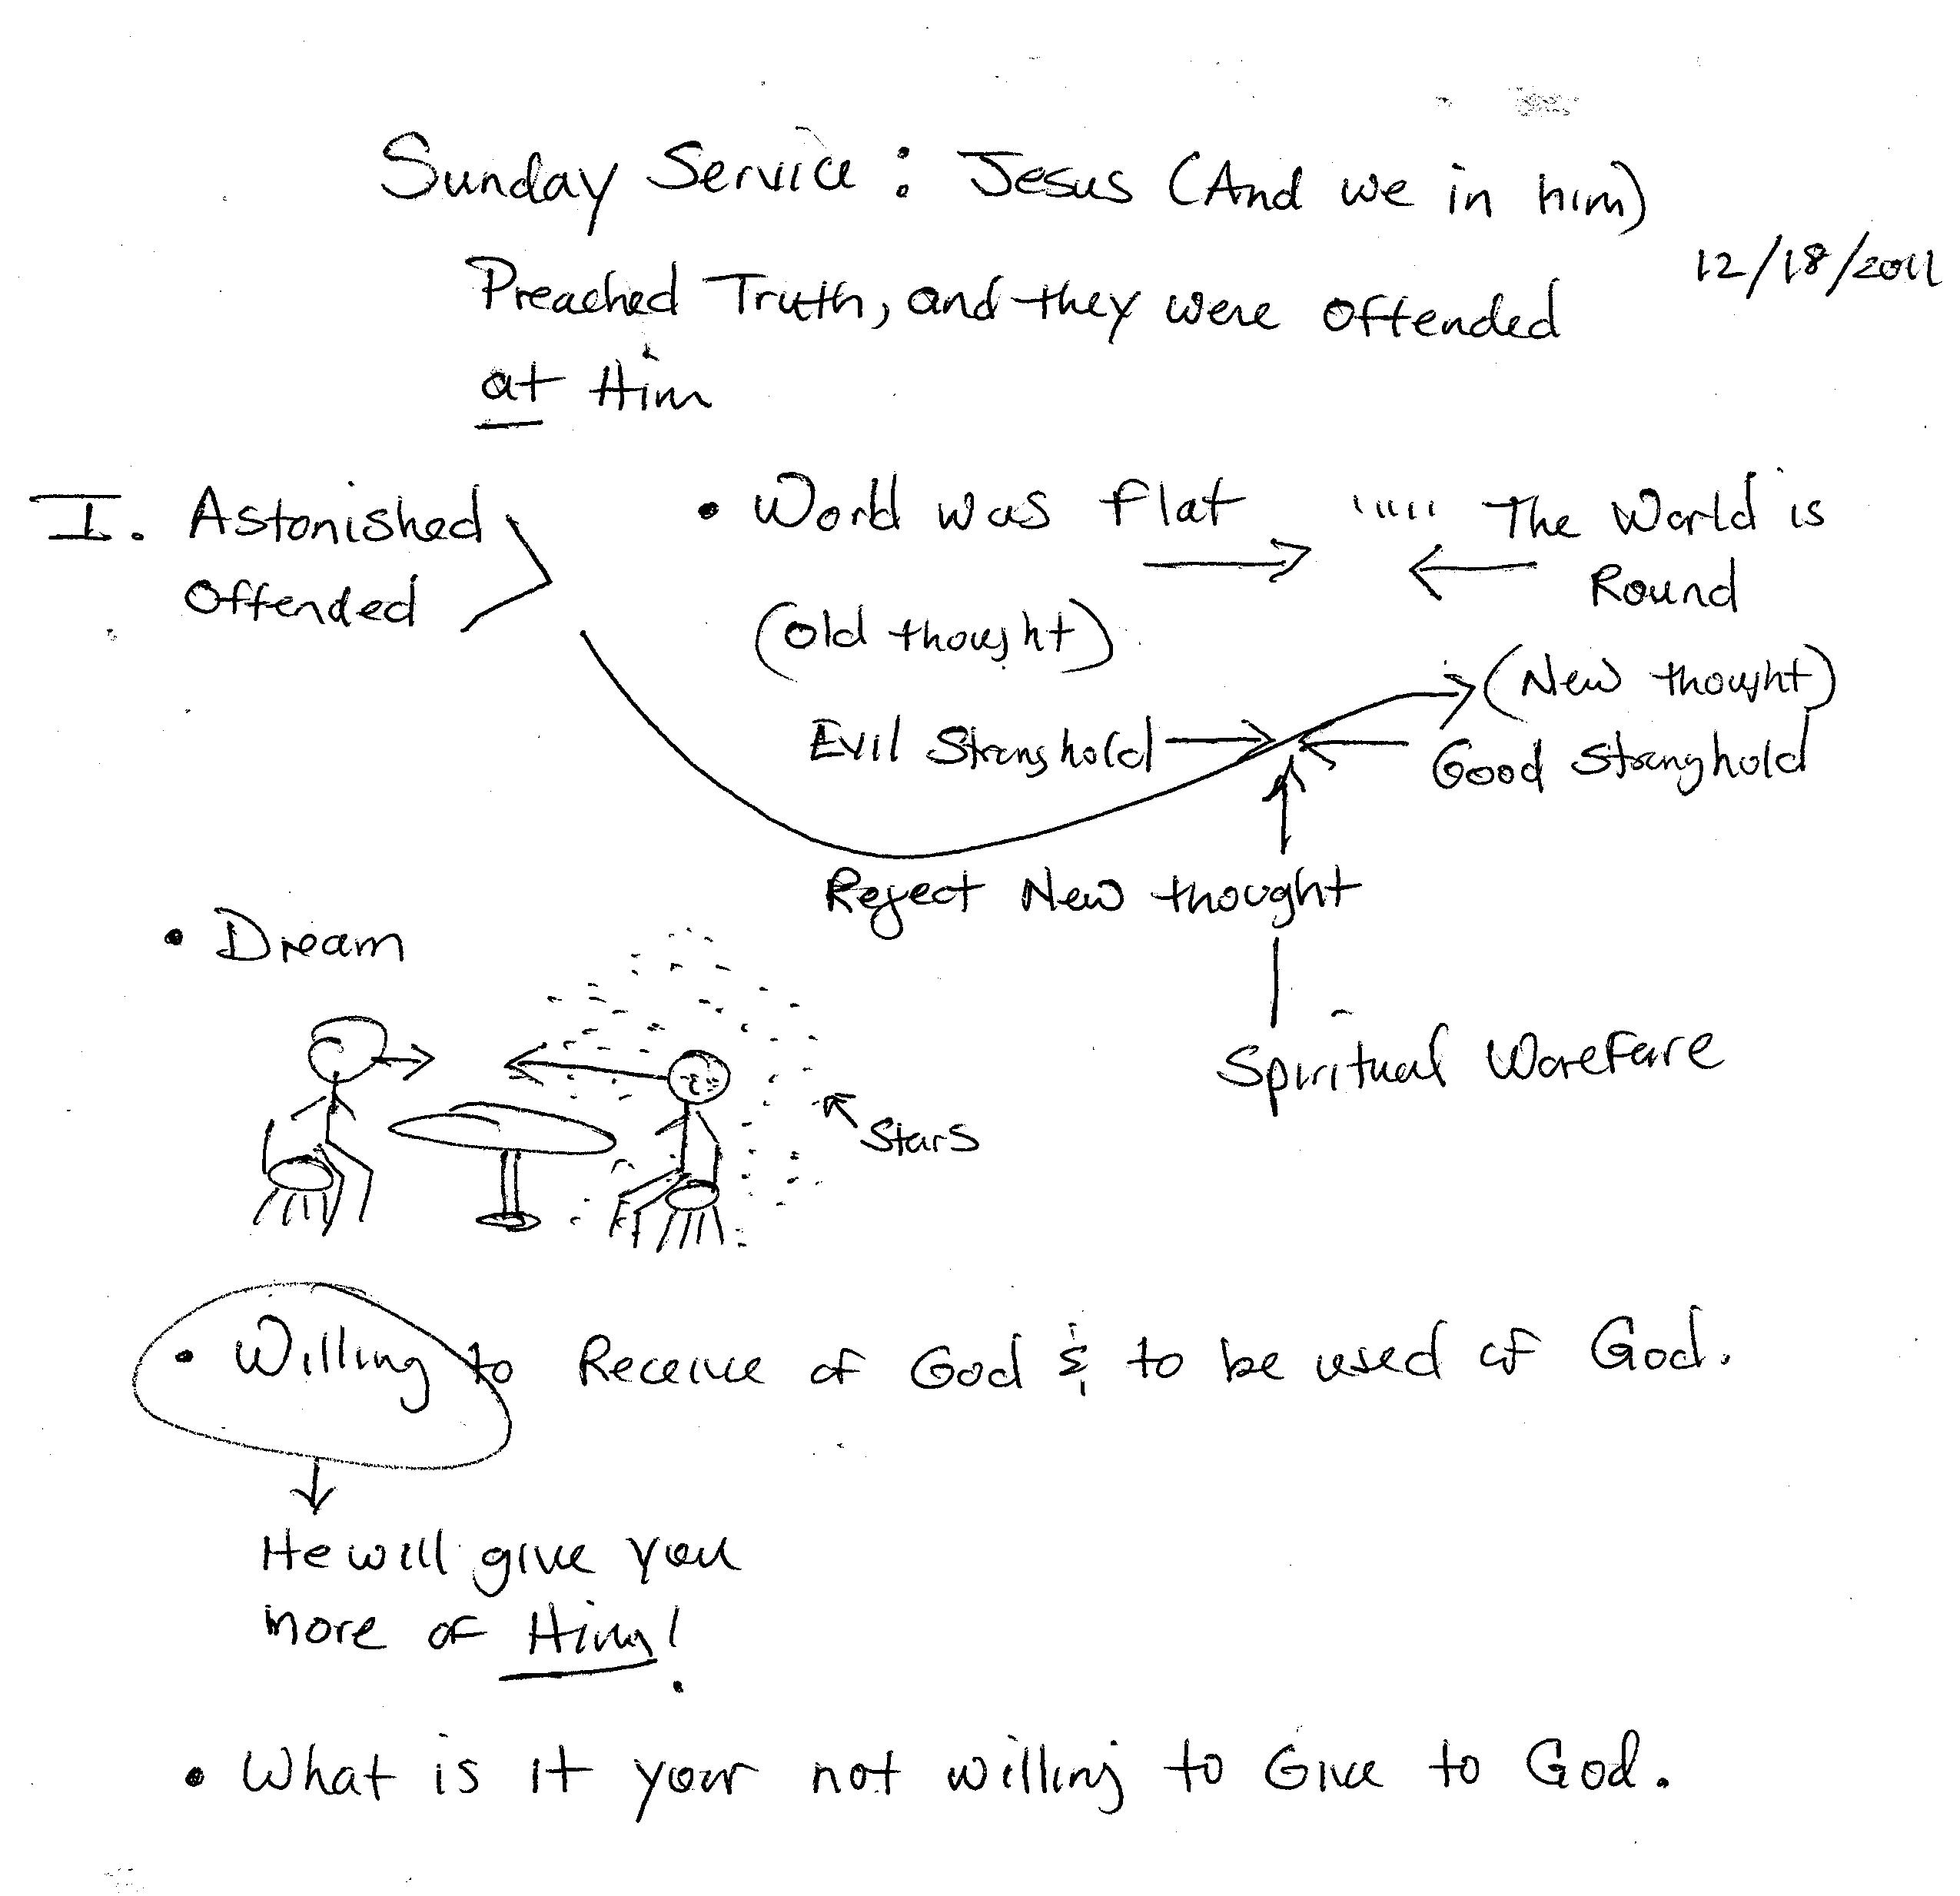 Sunday Service: Jesus (And we in him)
Preached Truth, and they were offended
at Him
12/18/2011
I. Astonished
Offended
• World was flat
''''' The World is
Round
(Old thought)
(New thought)
Evil Stronghold
Good Stronghold
Reject New thought
• Dream
Spiritual Warefare
Stars
• Willing to Receive of God & to be used of God.
He will give you
more of Him!
• What is it your not willing to Give to God.